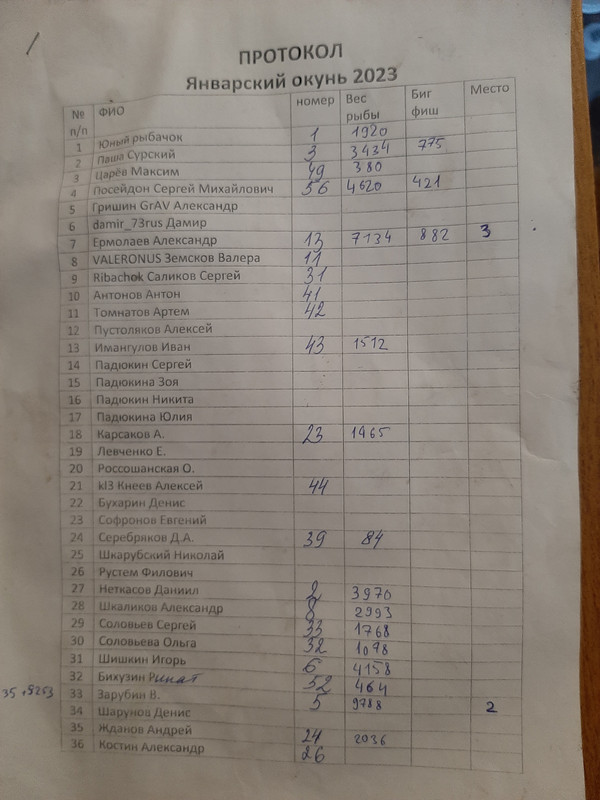 ПРОТОКОЛ
Январский окунь 2023
№ п/п ФИО номер Вес рыбы Биг фиш Место
1 Юный рыбачок 1 1920
2 Паша Сурский 3 3434 775
3 Царёв Максим 49 380
4 Посейдон Сергей Михайлович 56 4620 421
5 Гришин GrAV Александр
6 damir_73rus Дамир
7 Ермолаев Александр 13 7134 882 3
8 VALERONUS Земсков Валера 11
9 Ribachok Саликов Сергей 31
10 Антонов Антон 41
11 Томнатов Артем 42
12 Пустоляков Алексей
13 Имангулов Иван 43 1512
14 Падюкин Сергей
15 Падюкина Зоя
16 Падюкин Никита
17 Падюкина Юлия
18 Карсаков А. 23 1465
19 Левченко Е.
20 Россошанская О.
21 kl3 Кнеев Алексей 44
22 Бухарин Денис
23 Софронов Евгений
24 Серебряков Д.А. 39 84
25 Шкарубский Николай
26 Рустем Филович
27 Неткасов Даниил 2 3970
28 Шкаликов Александр 8 2993
29 Соловьев Сергей 33 1768
30 Соловьева Ольга 32 1078
31 Шишкин Игорь 6 4158
32 Бихузин Ринат 52 464
33 Зарубин В. 5 9788 2
34 Шарунов Денис
35 Жданов Андрей 24 2036
36 Костин Александр 26